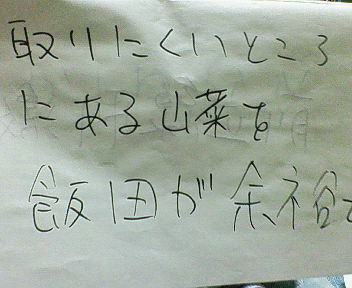 取りにくいところ
にある山菜を
飯田が余裕で